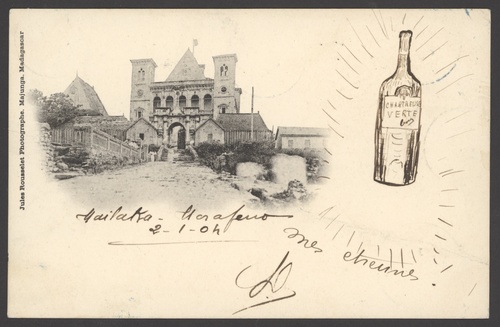 Jules Rousselet Photographe. Majunga. Madagascar
CHARTREUSE
VERTE
2-1-04
mes etrennes